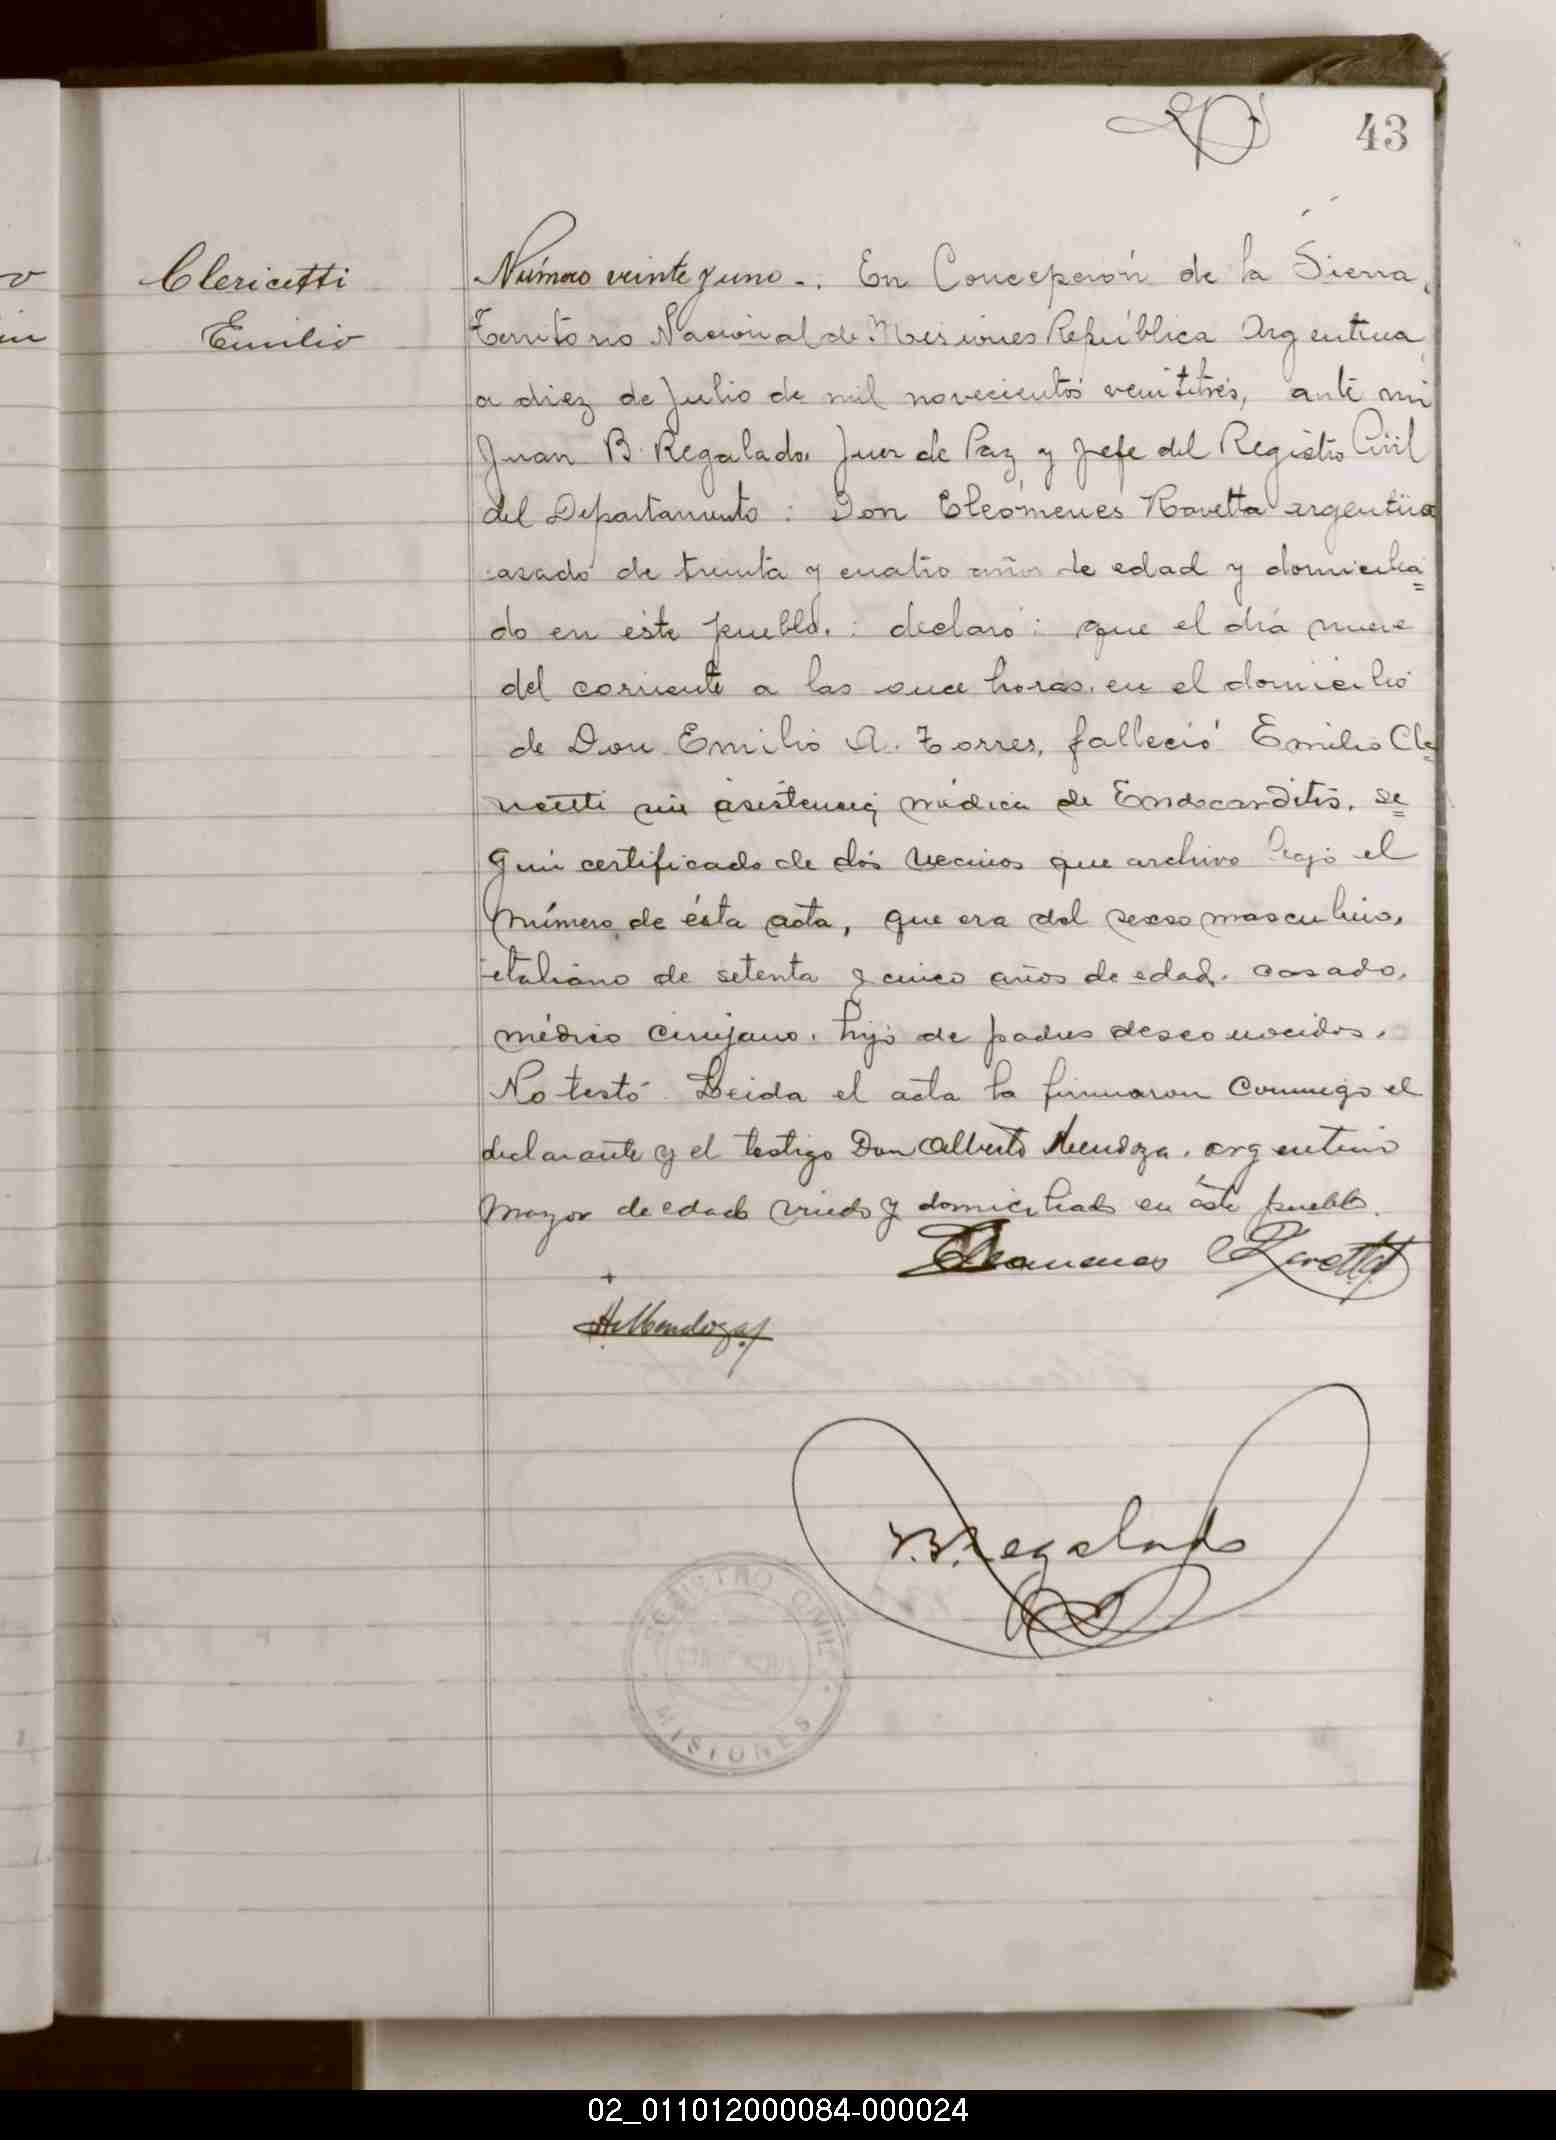 43
Clericetti
Emilio
Número veinte y uno -. En Concepción de la Sierra,
Territorio Nacional de Misiones República Argentina
a diez de Julio de mil novecientos veintitrés, ante mi
Juan B. Regalado, Juez de Paz y Jefe del Registro Civil
del Departamento : Don Cleómenes Ravetta argentino
casado de treinta y cuatro años de edad y domicilia=
do en este pueblo. : declaró : que el día nueve
del corriente a las once horas, en el domicilio
de Don Emilio A. Torres, falleció Emilio Cle=
ricetti sin asistencia médica de Endocarditis, se=
gún certificado de dós vecinos que archivo bajo el
número de ésta acta, que era del sexso masculino,
italiano de setenta y cinco años de edad, casado,
médico cirujano, hijo de padres desconocidos.
No testó. Leida el acta la firmaron conmigo el
declarante y el testigo Don Alberto Mendoza, argentino
mayor de edad viudo y domiciliado en éste pueblo.
Cleomenes Ravetta
A. Mendoza
J. B. Regalado
REGISTRO CIVIL
MISIONES
02_011012000084-000024